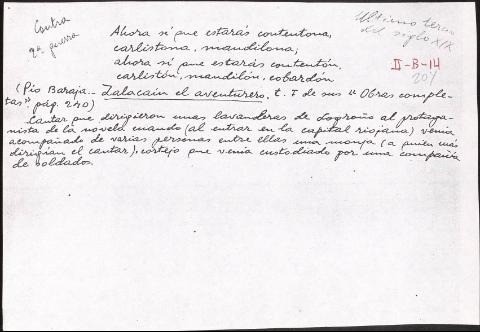 Contra
2ª guerra
Último tercio
del siglo XIX
Ahora sí que estarás contentona,
carlistona, mandilona;
ahora sí que estarás contentón,
carlistón, mandilón, cobardón
II-B-14
201
(Pío Baroja.- Zalacaín el aventurero, t. I de sus "Obras comple-
tas" pág. 240)
Cantar que dirigieron unas lavanderas de Logroño al protago-
nista de la novela cuando (al entrar en la capital riojana) venía
acompañado de varias personas entre ellas una monja (a quien más
dirigían el cantar), cortejo que venía custodiado por una compañía
de soldados.